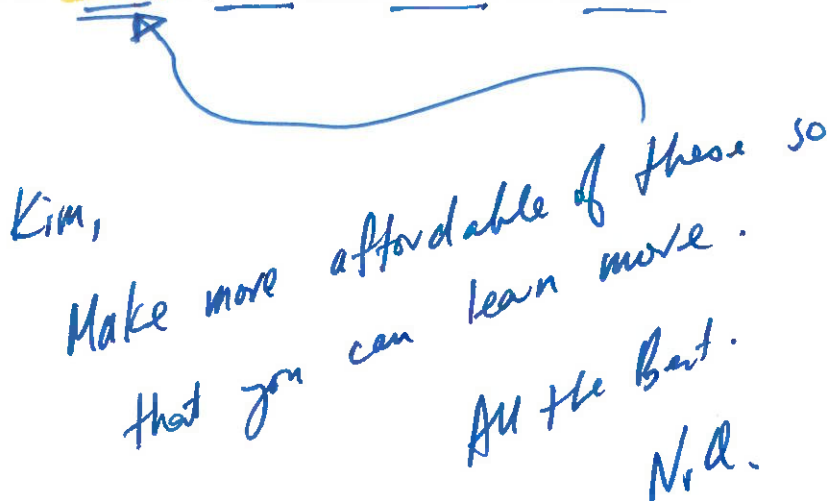 Kim,
Make more affordable of these so
that you can learn more.
All the Best.
N.Q.